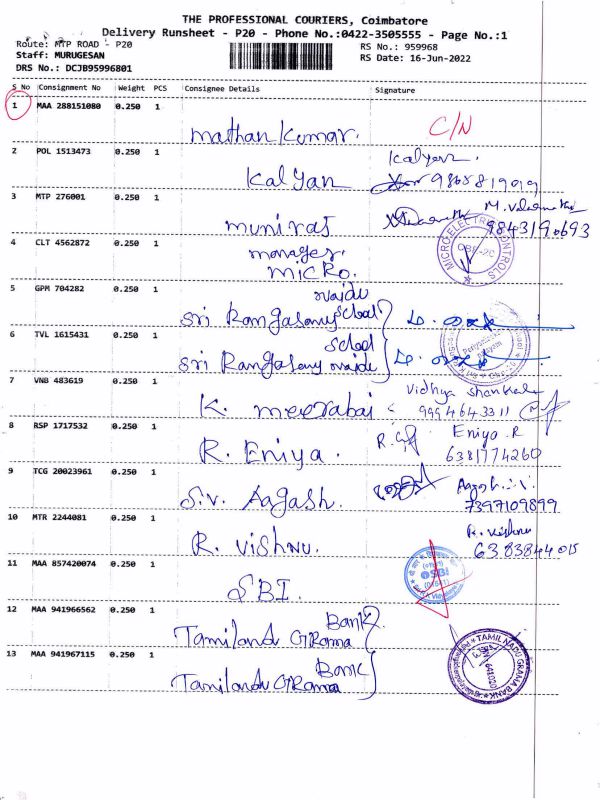 THE PROFESSIONAL COURIERS, Coimbatore
Delivery Runsheet - P20 - Phone No.:0422-3505555 - Page No.:1
Route: MTP ROAD - P20
RS No.: 959968
Staff: MURUGESAN
RS Date: 16-Jun-2022
DRS No.: DCJB95996801
S No Consignment No Weight PCS Consignee Details Signature
1 MAA 288151080 0.250 1
Mathan Kumar. C/N
2 POL 1513473 0.250 1 Kalyan.
Kalyan 9865819019
3 MTP 276001 0.250 1
muniraj 9843190693
4 CLT 4562872 0.250 1 manager.
MICRO.
MICROELECTRIC CONTROLS
5 GPM 704282 0.250 1 naidu
Sri Rangasamy School
6 TVL 1615431 0.250 1 School
Sri Rangasamy naidu
7 VNB 483619 0.250 1 Vidhya Shankar
K. meerabai 9994643311
8 RSP 1717532 0.250 1 Eniya R
R. Eniya. 6381774260
9 TCG 20023961 0.250 1
S.V. Aagash. 7397109899
10 MTR 2244081 0.250 1 R. Vishnu
R. Vishnu. 6383844015
11 MAA 857420074 0.250 1
SBI.
SBI
12 MAA 941966562 0.250 1 Bank
Tamilandu GRama
13 MAA 941967115 0.250 1 Bank
Tamilandu GRama
TAMIL NADU GRAMA BANK
641020